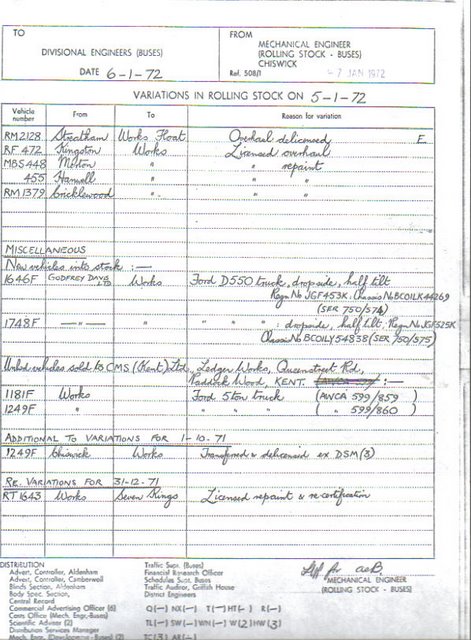 TO
FROM
DIVISIONAL ENGINEERS (BUSES)
MECHANICAL ENGINEER
(ROLLING STOCK - BUSES)
CHISWICK
DATE 6-1-72
Ref. 508/1
-7 JAN 1972
VARIATIONS IN ROLLING STOCK ON 5-1-72
Vehicle number From To Reason for variation
RM2128 Streatham Works Float Overhaul delicensed E
RF 472 Kingston Works Licensed overhaul
MBS448 Merton " " repaint
455 Hanwell " " "
RM 1379 Cricklewood " " "
MISCELLANEOUS
New vehicles into stock :—
1646F GODFREY DAVIS LTD Works Ford D550 truck, dropside, half tilt
Regn No JGF453K. Chassis No BCOILK44269
(SER 750/574)
1748F —"— " " " " : dropside, half tilt. Regn No JGF525K
Chassis No BCOILY54838 (SER 750/575)
vehicles sold to CMS (Kent) Ltd, Ledger Works, Queenstreet Rd,
Paddock Wood, KENT. :—
1181F Works Ford 5ton truck (AWCA 599/859 )
1249F " " " " ( " 599/860 )
ADDITIONAL TO VARIATIONS FOR 1-10-71
1249F Chiswick Works Transferred & delicensed ex DSM(3)
RE. VARIATIONS FOR 31-12-71
RT 1643 Works Seven Kings Licensed repaint & recertification
DISTRIBUTION
Advert. Controller, Aldenham
Advert. Controller, Camberwell
Blinds Section, Aldenham
Body Spec. Section,
Central Record
Commercial Advertising Officer (6)
Costs Office (Mech. Engr.-Buses)
Scientific Adviser (2)
Distribution Services Manager
Mech. Engr. (Development - Buses) (2)
Traffic Supt. (Buses)
Financial Research Officer
Schedules Supt. Buses
Traffic Auditor, Griffith House
District Engineers
Q(—) NX(—) T(—) HT(—) R(—)
TL(—) SW(—) WN(—) W(2) HW(3)
TC(3) AR(—)
for
MECHANICAL ENGINEER
(ROLLING STOCK - BUSES)